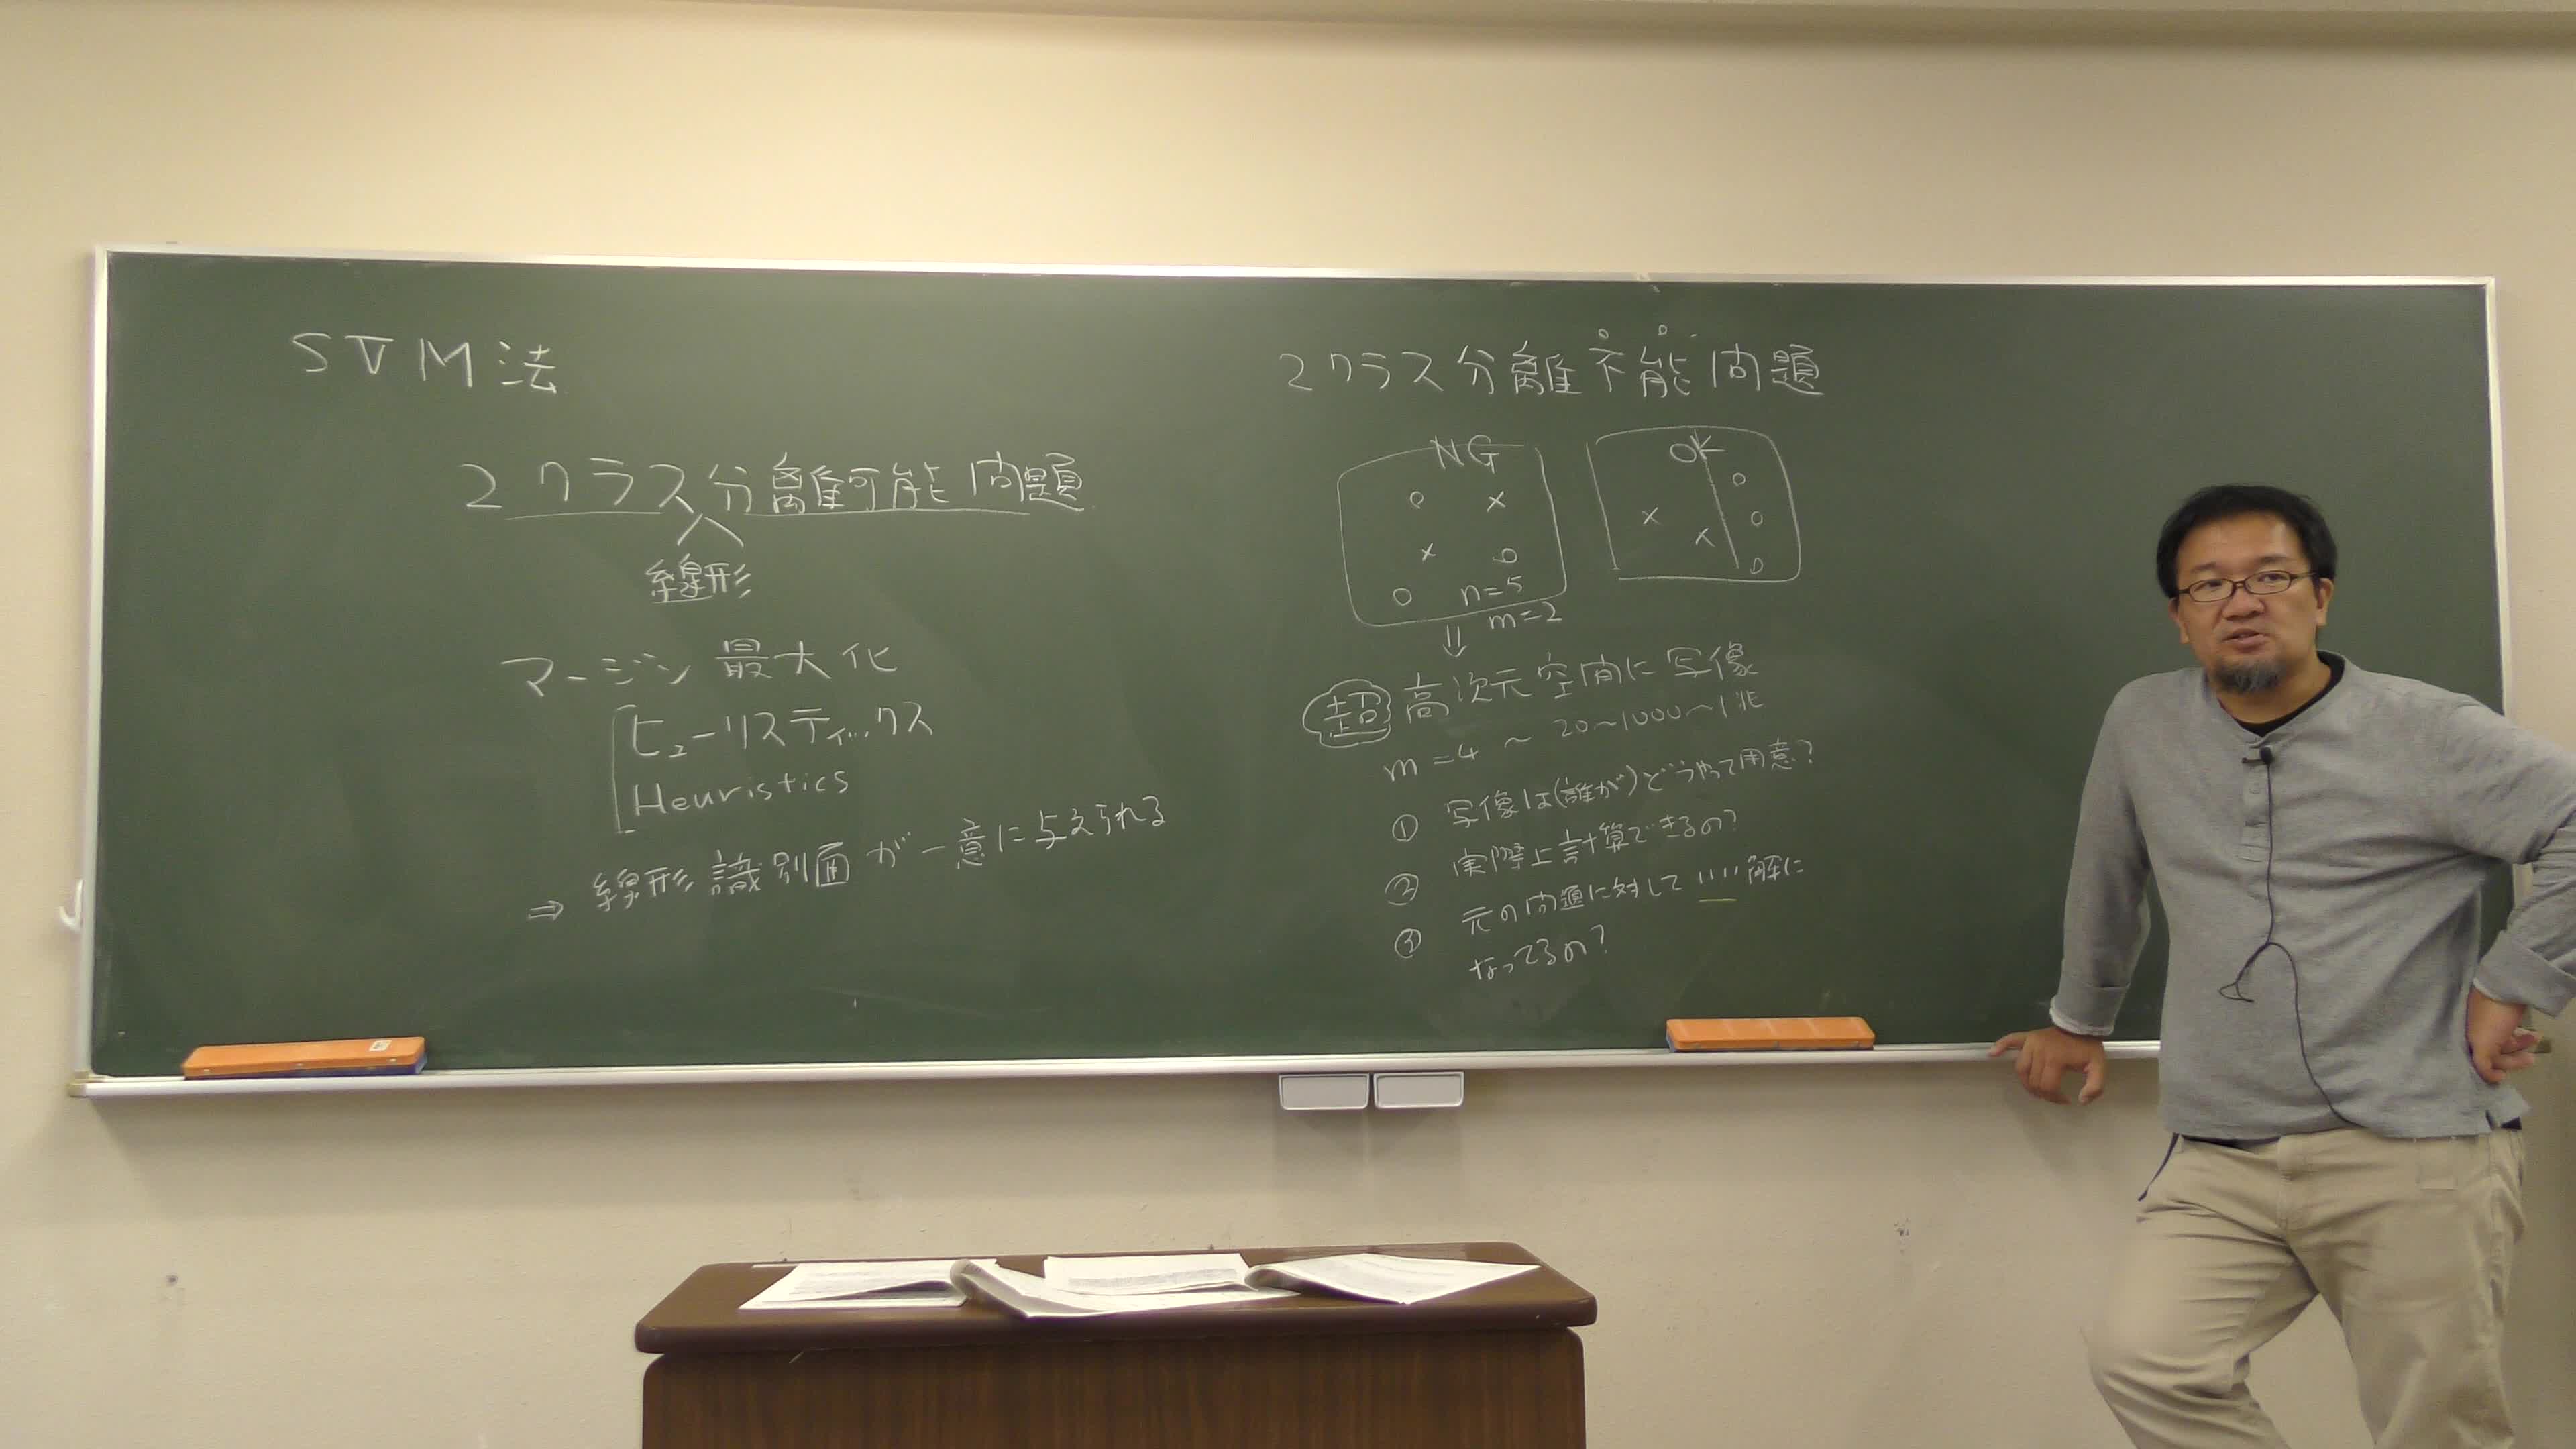 SVM法
2クラス分離可能問題
線形
マージン最大化
ヒューリスティックス
Heuristics
⇒ 線形識別面が一意に与えられる
2クラス分離不能問題
NG
n=5
m=2
OK
⇓
超高次元空間に写像
m=4 ~ 20~1000~1兆
① 写像は(誰が)どうやって用意?
② 実際上計算できるの?
③ 元の問題に対して いい解に
なってるの?